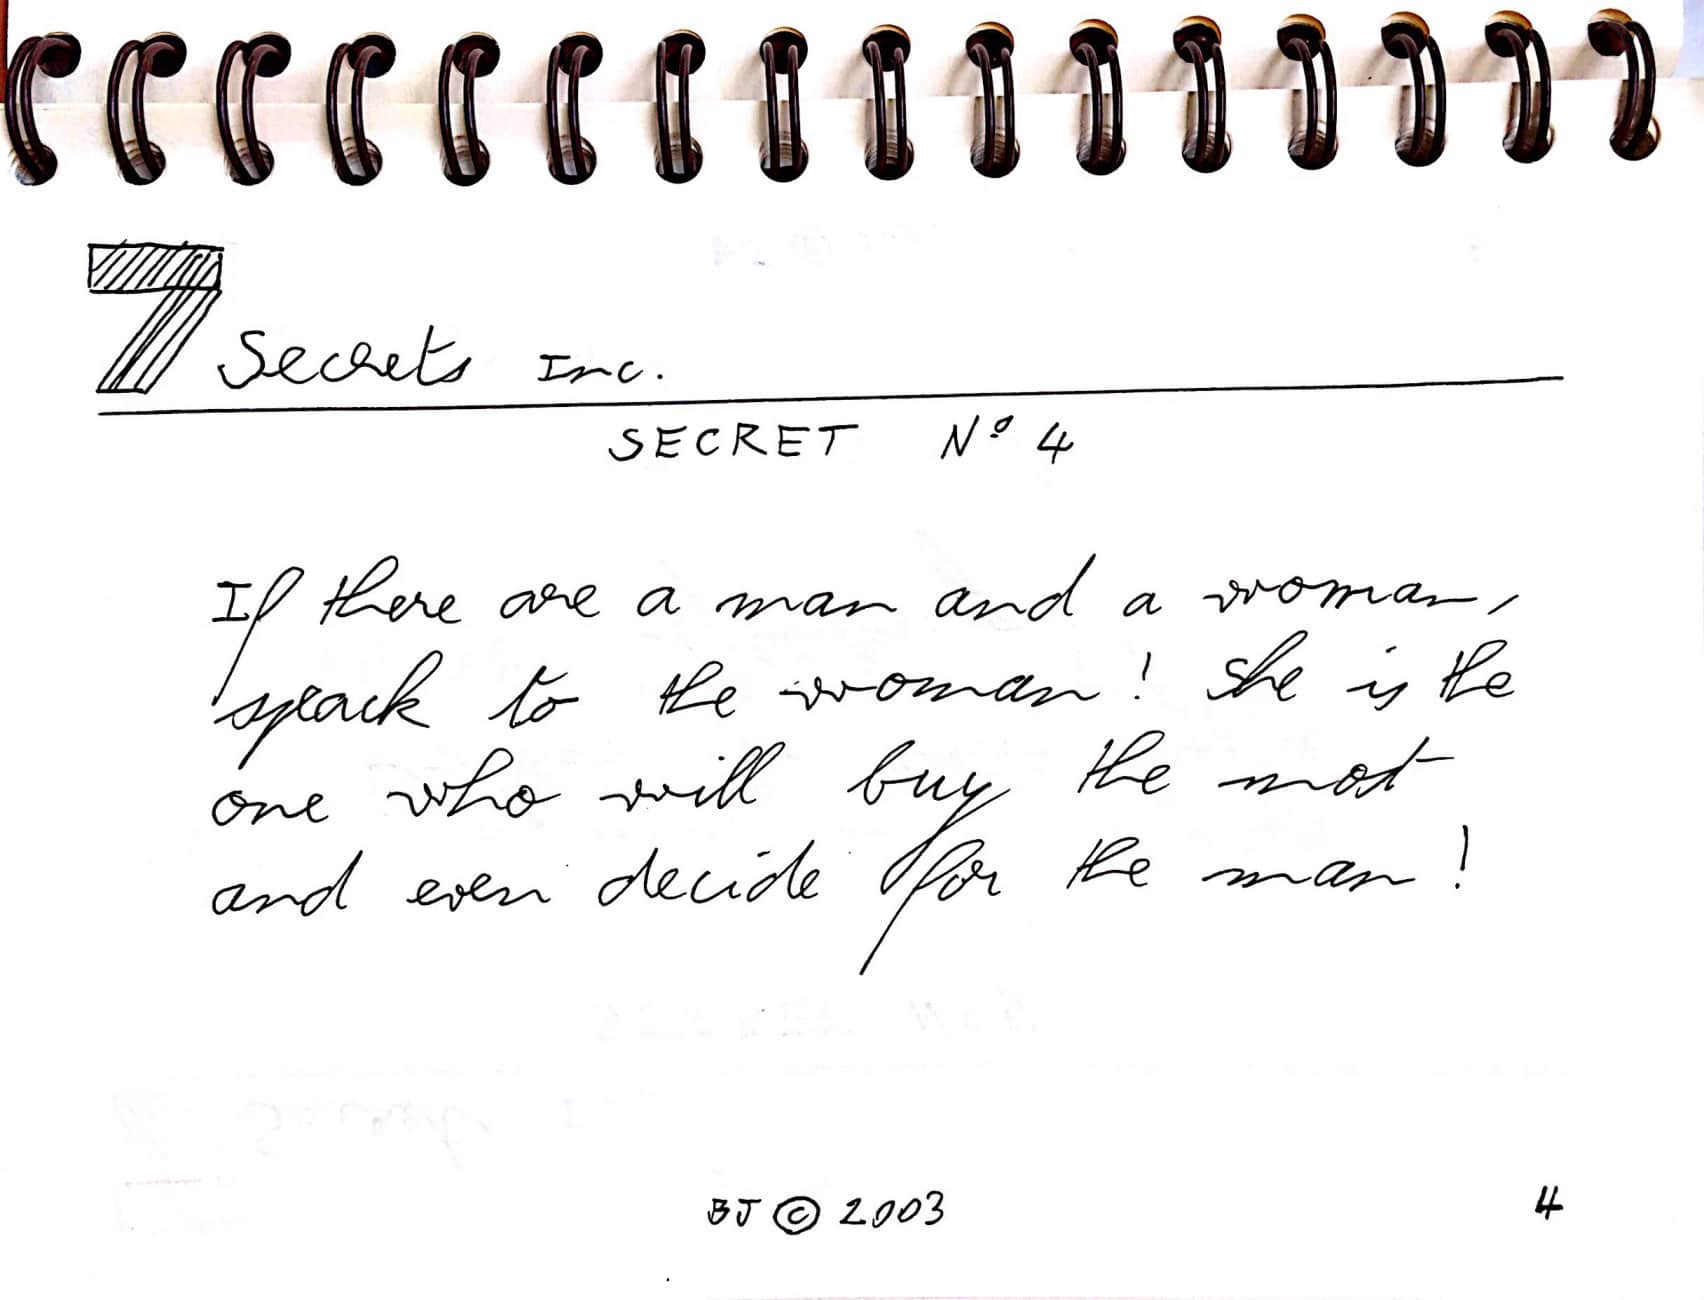 7 Secrets Inc.
SECRET Nº 4
If there are a man and a woman,
speack to the woman! She is the
one who will buy the most
and even decide for the man!
BJ © 2003
4